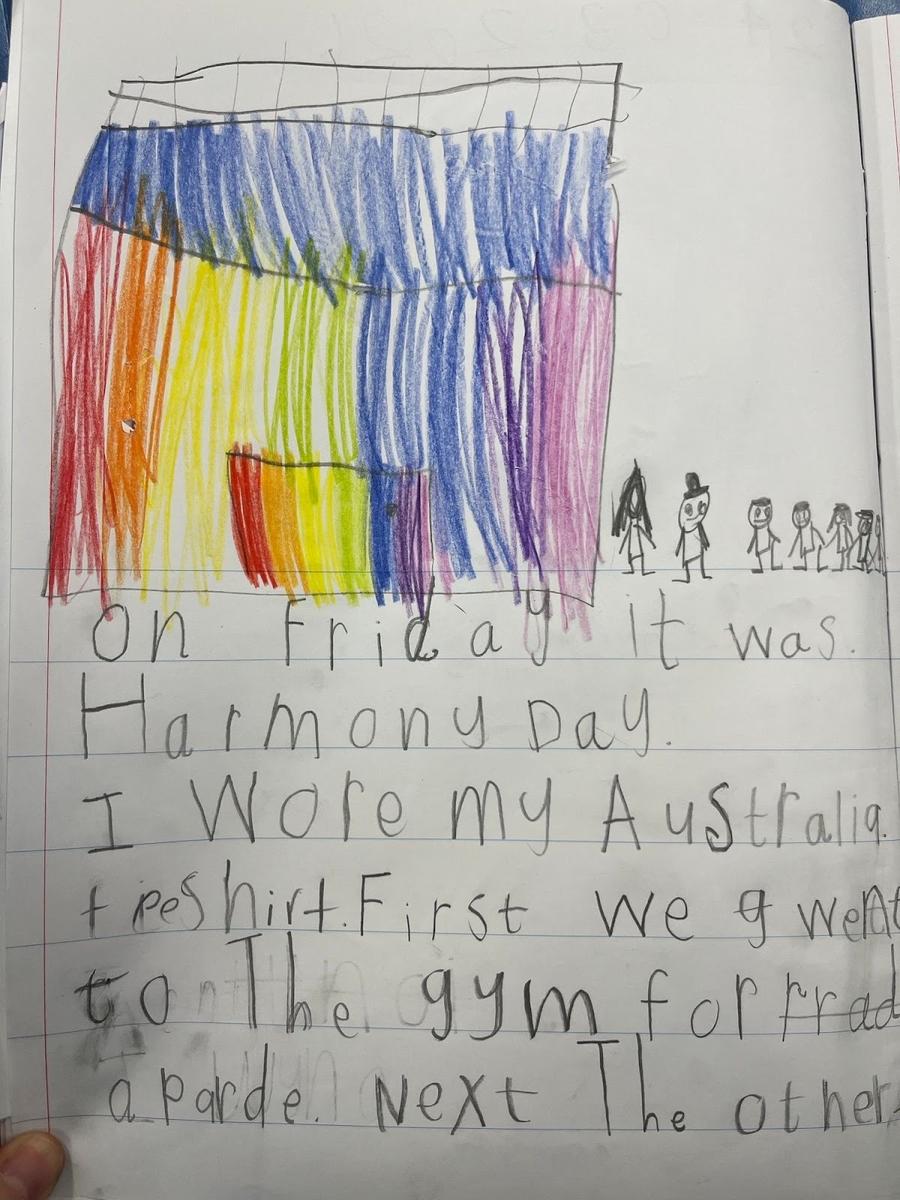 On Friday it was.
Harmony Day.
I Wore my Australia.
teeshirt. First we g went
to The gym for
a Parde. Next The other